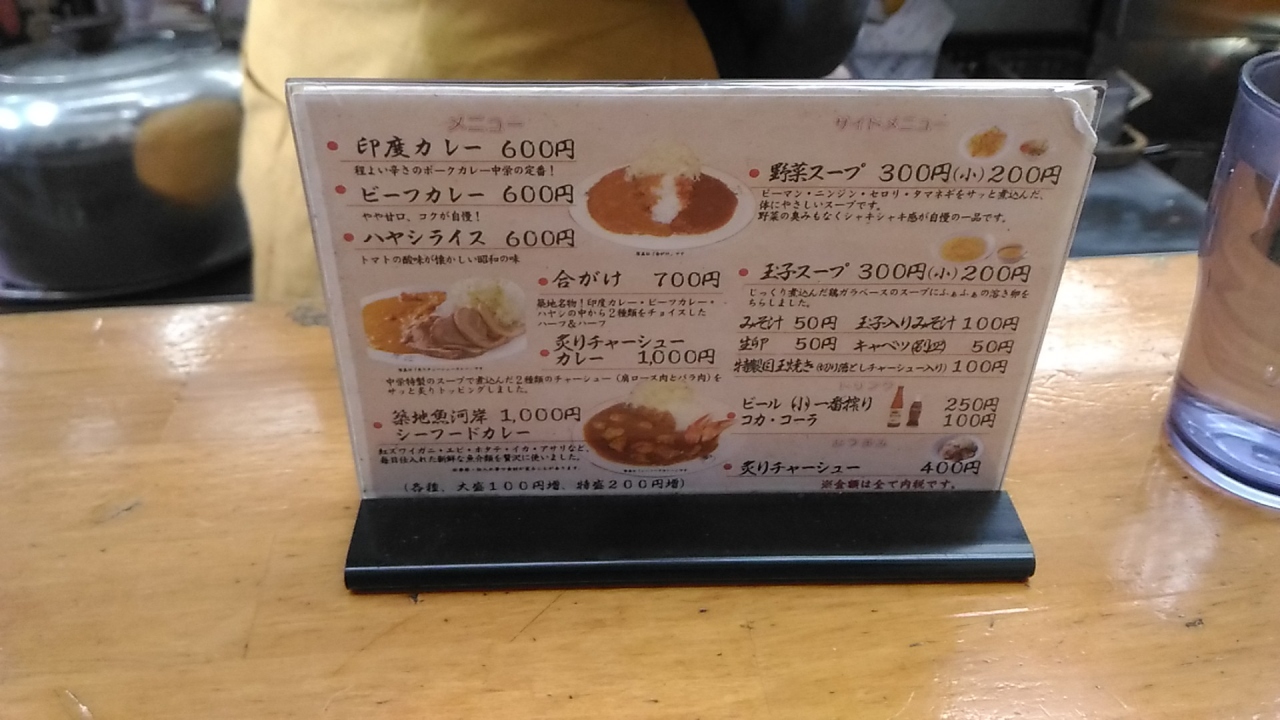 メニュー
印度カレー 600円
程よい辛さのポークカレー中栄の定番！
ビーフカレー 600円
やや甘口、コクが自慢！
ハヤシライス 600円
トマトの酸味が懐かしい昭和の味
合がけ 700円
築地名物！印度カレー・ビーフカレー・
ハヤシの中から2種類をチョイスした
ハーフ&ハーフ
炙りチャーシュー
カレー 1,000円
中栄特製のスープで煮込んだ2種類のチャーシュー（肩ロース肉とバラ肉）を
サッと炙りトッピングしました。
築地魚河岸 1,000円
シーフードカレー
紅ズワイガニ・エビ・ホタテ・イカ・アサリなど、
毎日仕入れた新鮮な魚介類を贅沢に使いました。
（各種、大盛100円増、特盛200円増）
サイドメニュー
野菜スープ 300円(小)200円
ピーマン・ニンジン・セロリ・タマネギをサッと煮込んだ、
体にやさしいスープです。
野菜の臭みもなくシャキシャキ感が自慢の一品です。
玉子スープ 300円(小)200円
じっくり煮込んだ鶏ガラベースのスープにふぁふぁの溶き卵を
ちらしました。
みそ汁 50円 玉子入りみそ汁 100円
生卵 50円 キャベツ(別皿) 50円
特製目玉焼き(切り落としチャーシュー入り) 100円
ドリンク
ビール (小)一番搾り 250円
コカ・コーラ 100円
おつまみ
炙りチャーシュー 400円
※金額は全て内税です。